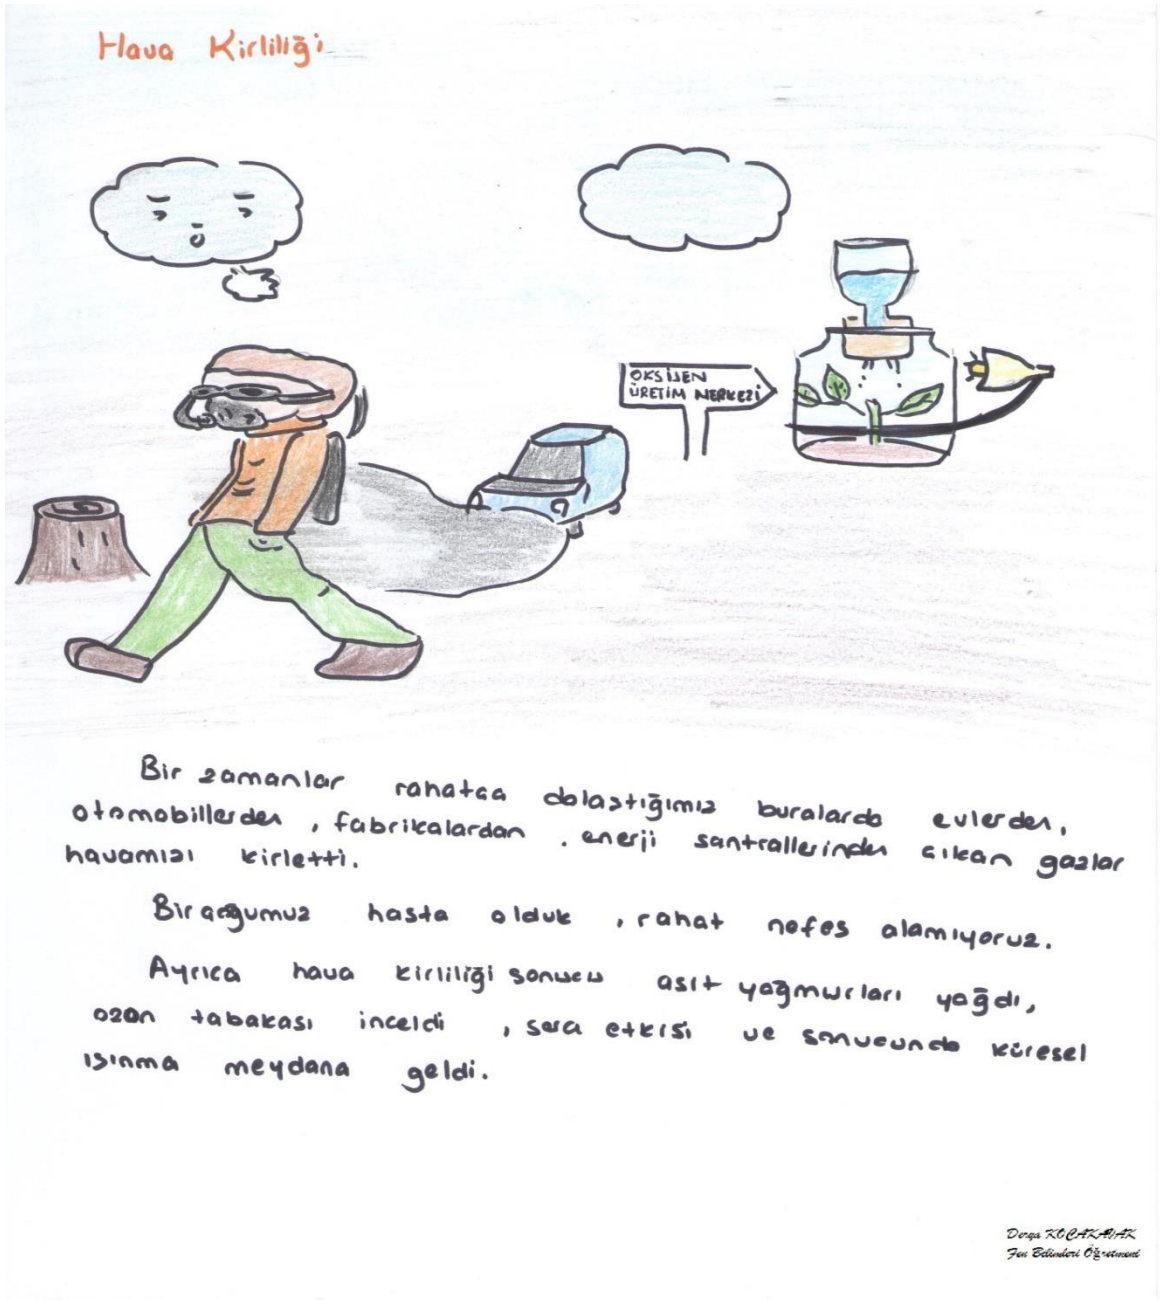 Hava Kirliliği
OKSİJEN
ÜRETİM MERKEZİ
Bir zamanlar rahatça dolaştığımız buralarda evlerden,
otomobillerden , fabrikalardan , enerji santrallerinden çıkan gazlar
havamızı kirletti.
Birçoğumuz hasta olduk , rahat nefes alamıyoruz.
Ayrıca hava kirliliği sonucu asit yağmurları yağdı,
ozon tabakası inceldi , sera etkisi ve sonucunda küresel
ısınma meydana geldi.
Derya KOÇAKAVAK
Fen Bilimleri Öğretmeni